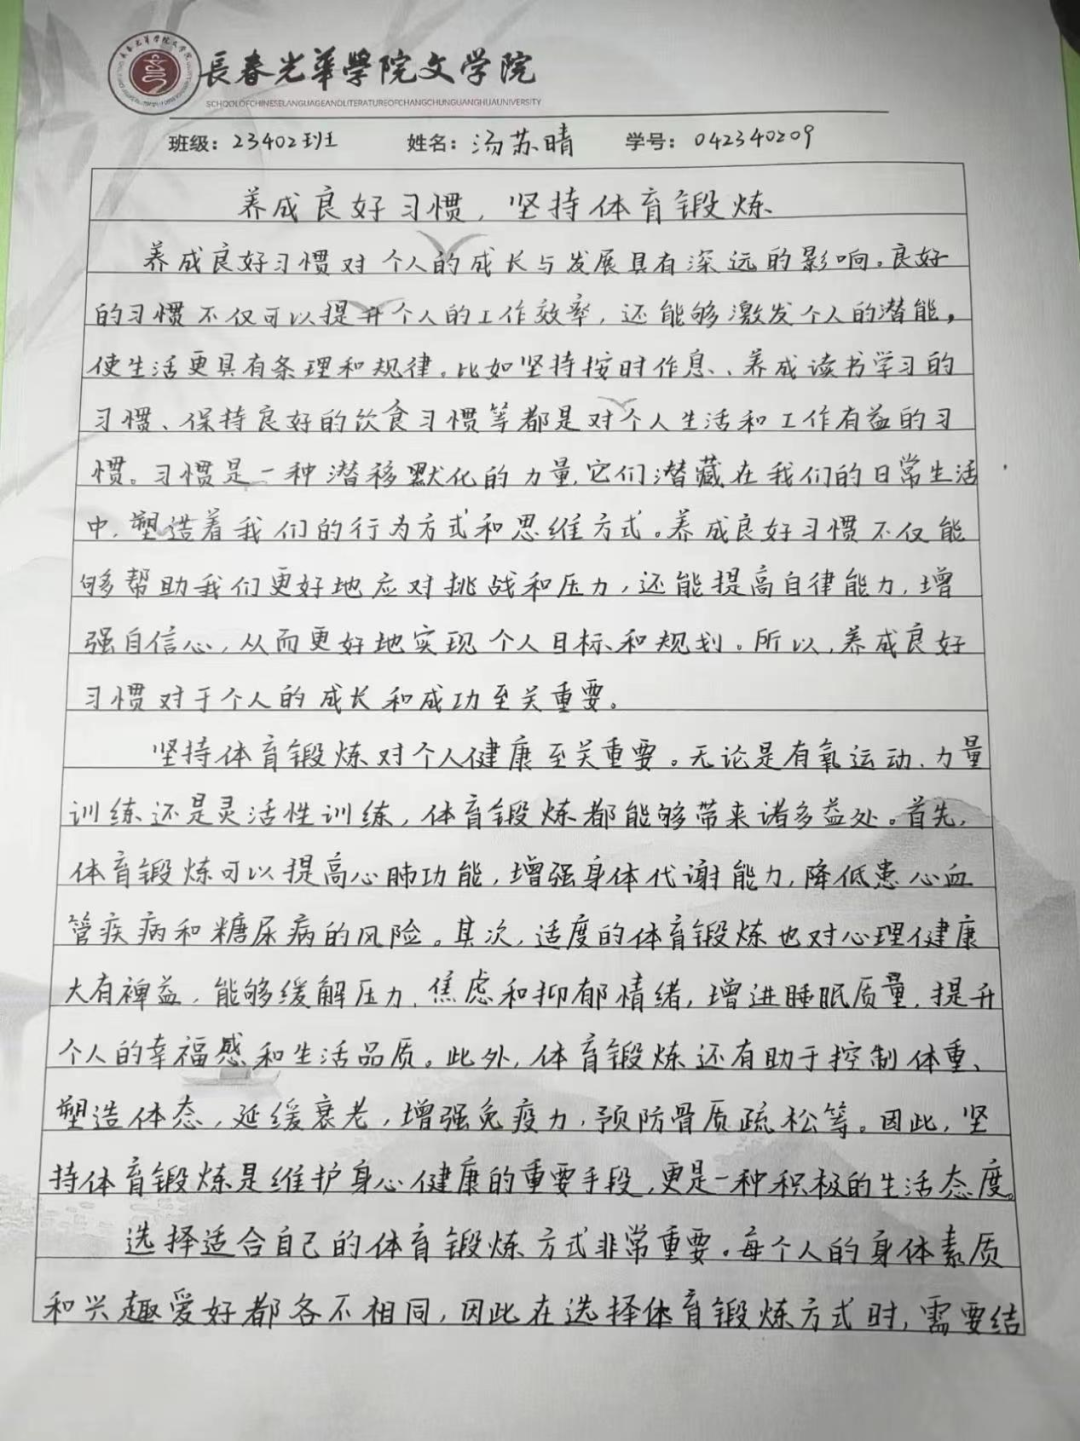 長春光華學院文学院
SCHOOLOFCHINESELANGUAGEANDLITERATUREOFCHANGCHUNGUANGHUAUNIVERSITY
班级：23402班 姓名：汤苏晴 学号：042340209
养成良好习惯，坚持体育锻炼
养成良好习惯对个人的成长与发展具有深远的影响。良好
的习惯不仅可以提升个人的工作效率，还能够激发个人的潜能，
使生活更具有条理和规律。比如坚持按时作息、养成读书学习的
习惯、保持良好的饮食习惯等都是对个人生活和工作有益的习
惯。习惯是一种潜移默化的力量，它们潜藏在我们的日常生活
中，塑造着我们的行为方式和思维方式。养成良好习惯不仅能
够帮助我们更好地应对挑战和压力，还能提高自律能力，增
强自信心，从而更好地实现个人目标和规划。所以，养成良好
习惯对于个人的成长和成功至关重要。
坚持体育锻炼对个人健康至关重要。无论是有氧运动、力量
训练还是灵活性训练，体育锻炼都能够带来诸多益处。首先，
体育锻炼可以提高心肺功能，增强身体代谢能力，降低患心血
管疾病和糖尿病的风险。其次，适度的体育锻炼也对心理健康
大有裨益，能够缓解压力、焦虑和抑郁情绪，增进睡眠质量，提升
个人的幸福感和生活品质。此外，体育锻炼还有助于控制体重、
塑造体态，延缓衰老，增强免疫力，预防骨质疏松等。因此，坚
持体育锻炼是维护身心健康的重要手段，更是一种积极的生活态度。
选择适合自己的体育锻炼方式非常重要。每个人的身体素质
和兴趣爱好都各不相同，因此在选择体育锻炼方式时，需要结